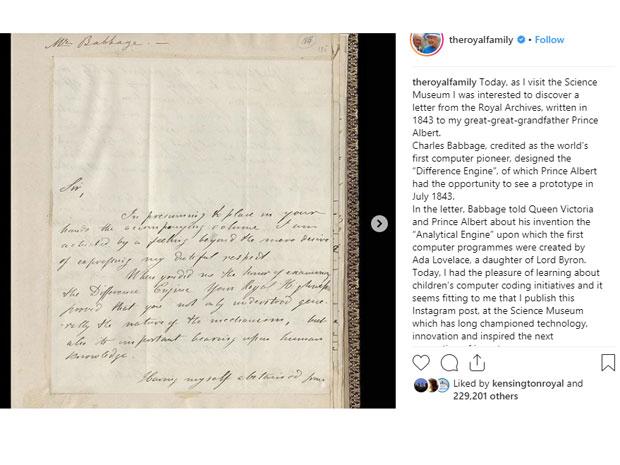 Mr Babbage. —
Sir,
In presuming to place in your
hands the accompanying volume I am
actuated by a feeling beyond the mere desire
of expressing my dutiful respect
When you did me the honor of examining
the Difference Engine Your Royal Highness
proved that you not only understood gene-
rally the nature of the mechanism, but
also its important bearing upon human
knowledge.
Having myself abstained from
theroyalfamily • Follow
theroyalfamily Today, as I visit the Science
Museum I was interested to discover a
letter from the Royal Archives, written in
1843 to my great-great-grandfather Prince
Albert.
Charles Babbage, credited as the world's
first computer pioneer, designed the
"Difference Engine", of which Prince Albert
had the opportunity to see a prototype in
July 1843.
In the letter, Babbage told Queen Victoria
and Prince Albert about his invention the
"Analytical Engine" upon which the first
computer programmes were created by
Ada Lovelace, a daughter of Lord Byron.
Today, I had the pleasure of learning about
children's computer coding initiatives and it
seems fitting to me that I publish this
Instagram post, at the Science Museum
which has long championed technology,
innovation and inspired the next
Liked by kensingtonroyal and
229,201 others